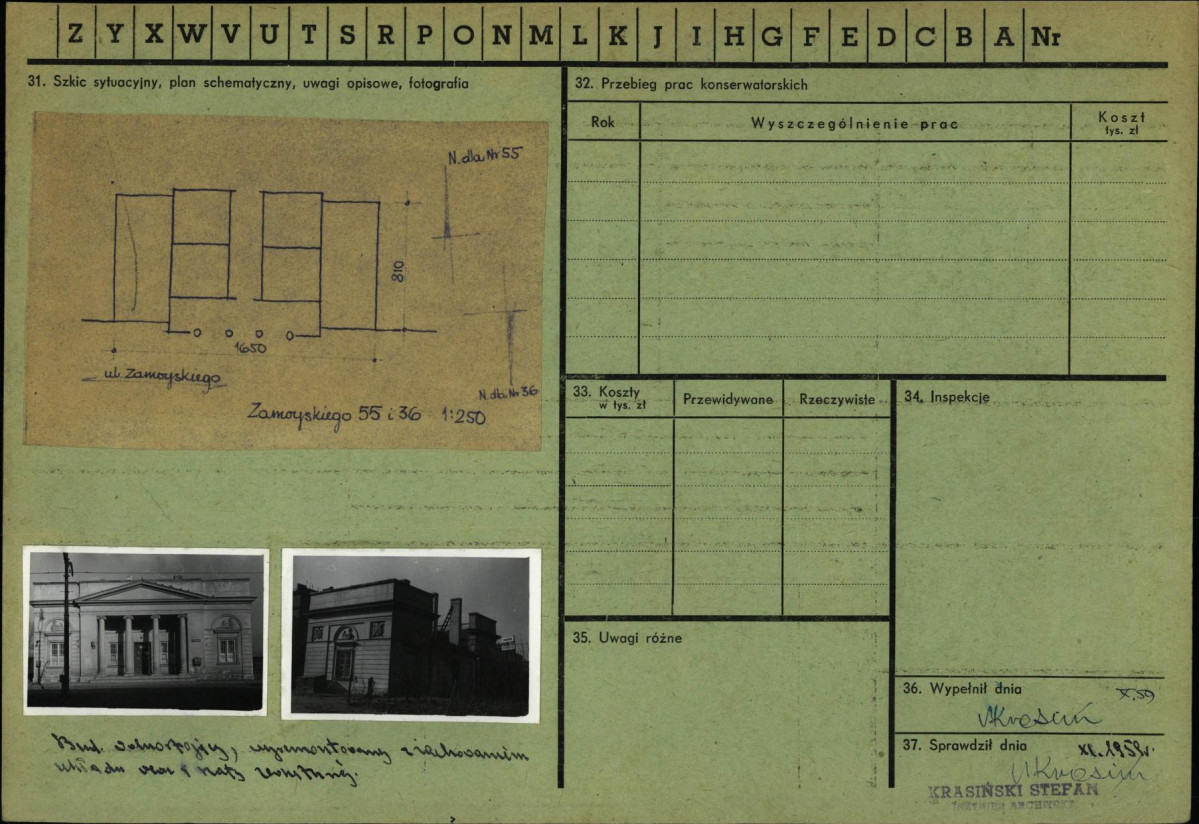 Z Y X W V U T S R P O N M L K J I H G F E D C B A Nr
31. Szkic sytuacyjny, plan schematyczny, uwagi opisowe, fotografia
N. dla Nr 55
810
1650
ul. Zamoyskiego
N. dla Nr 36
Zamoyskiego 55 i 36 1:250
Bud. wolnostojący, wyremontowany z zachowaniem
układu oraz szaty zewnętrznej.
32. Przebieg prac konserwatorskich
Rok
Wyszczególnienie prac
Koszt
tys. zł
33. Koszty
w tys. zł
Przewidywane
Rzeczywiste
34. Inspekcje
35. Uwagi różne
36. Wypełnił dnia
X.59
37. Sprawdził dnia
XI.1959r.
KRASIŃSKI STEFAN
INŻYNIER ARCHITEKT